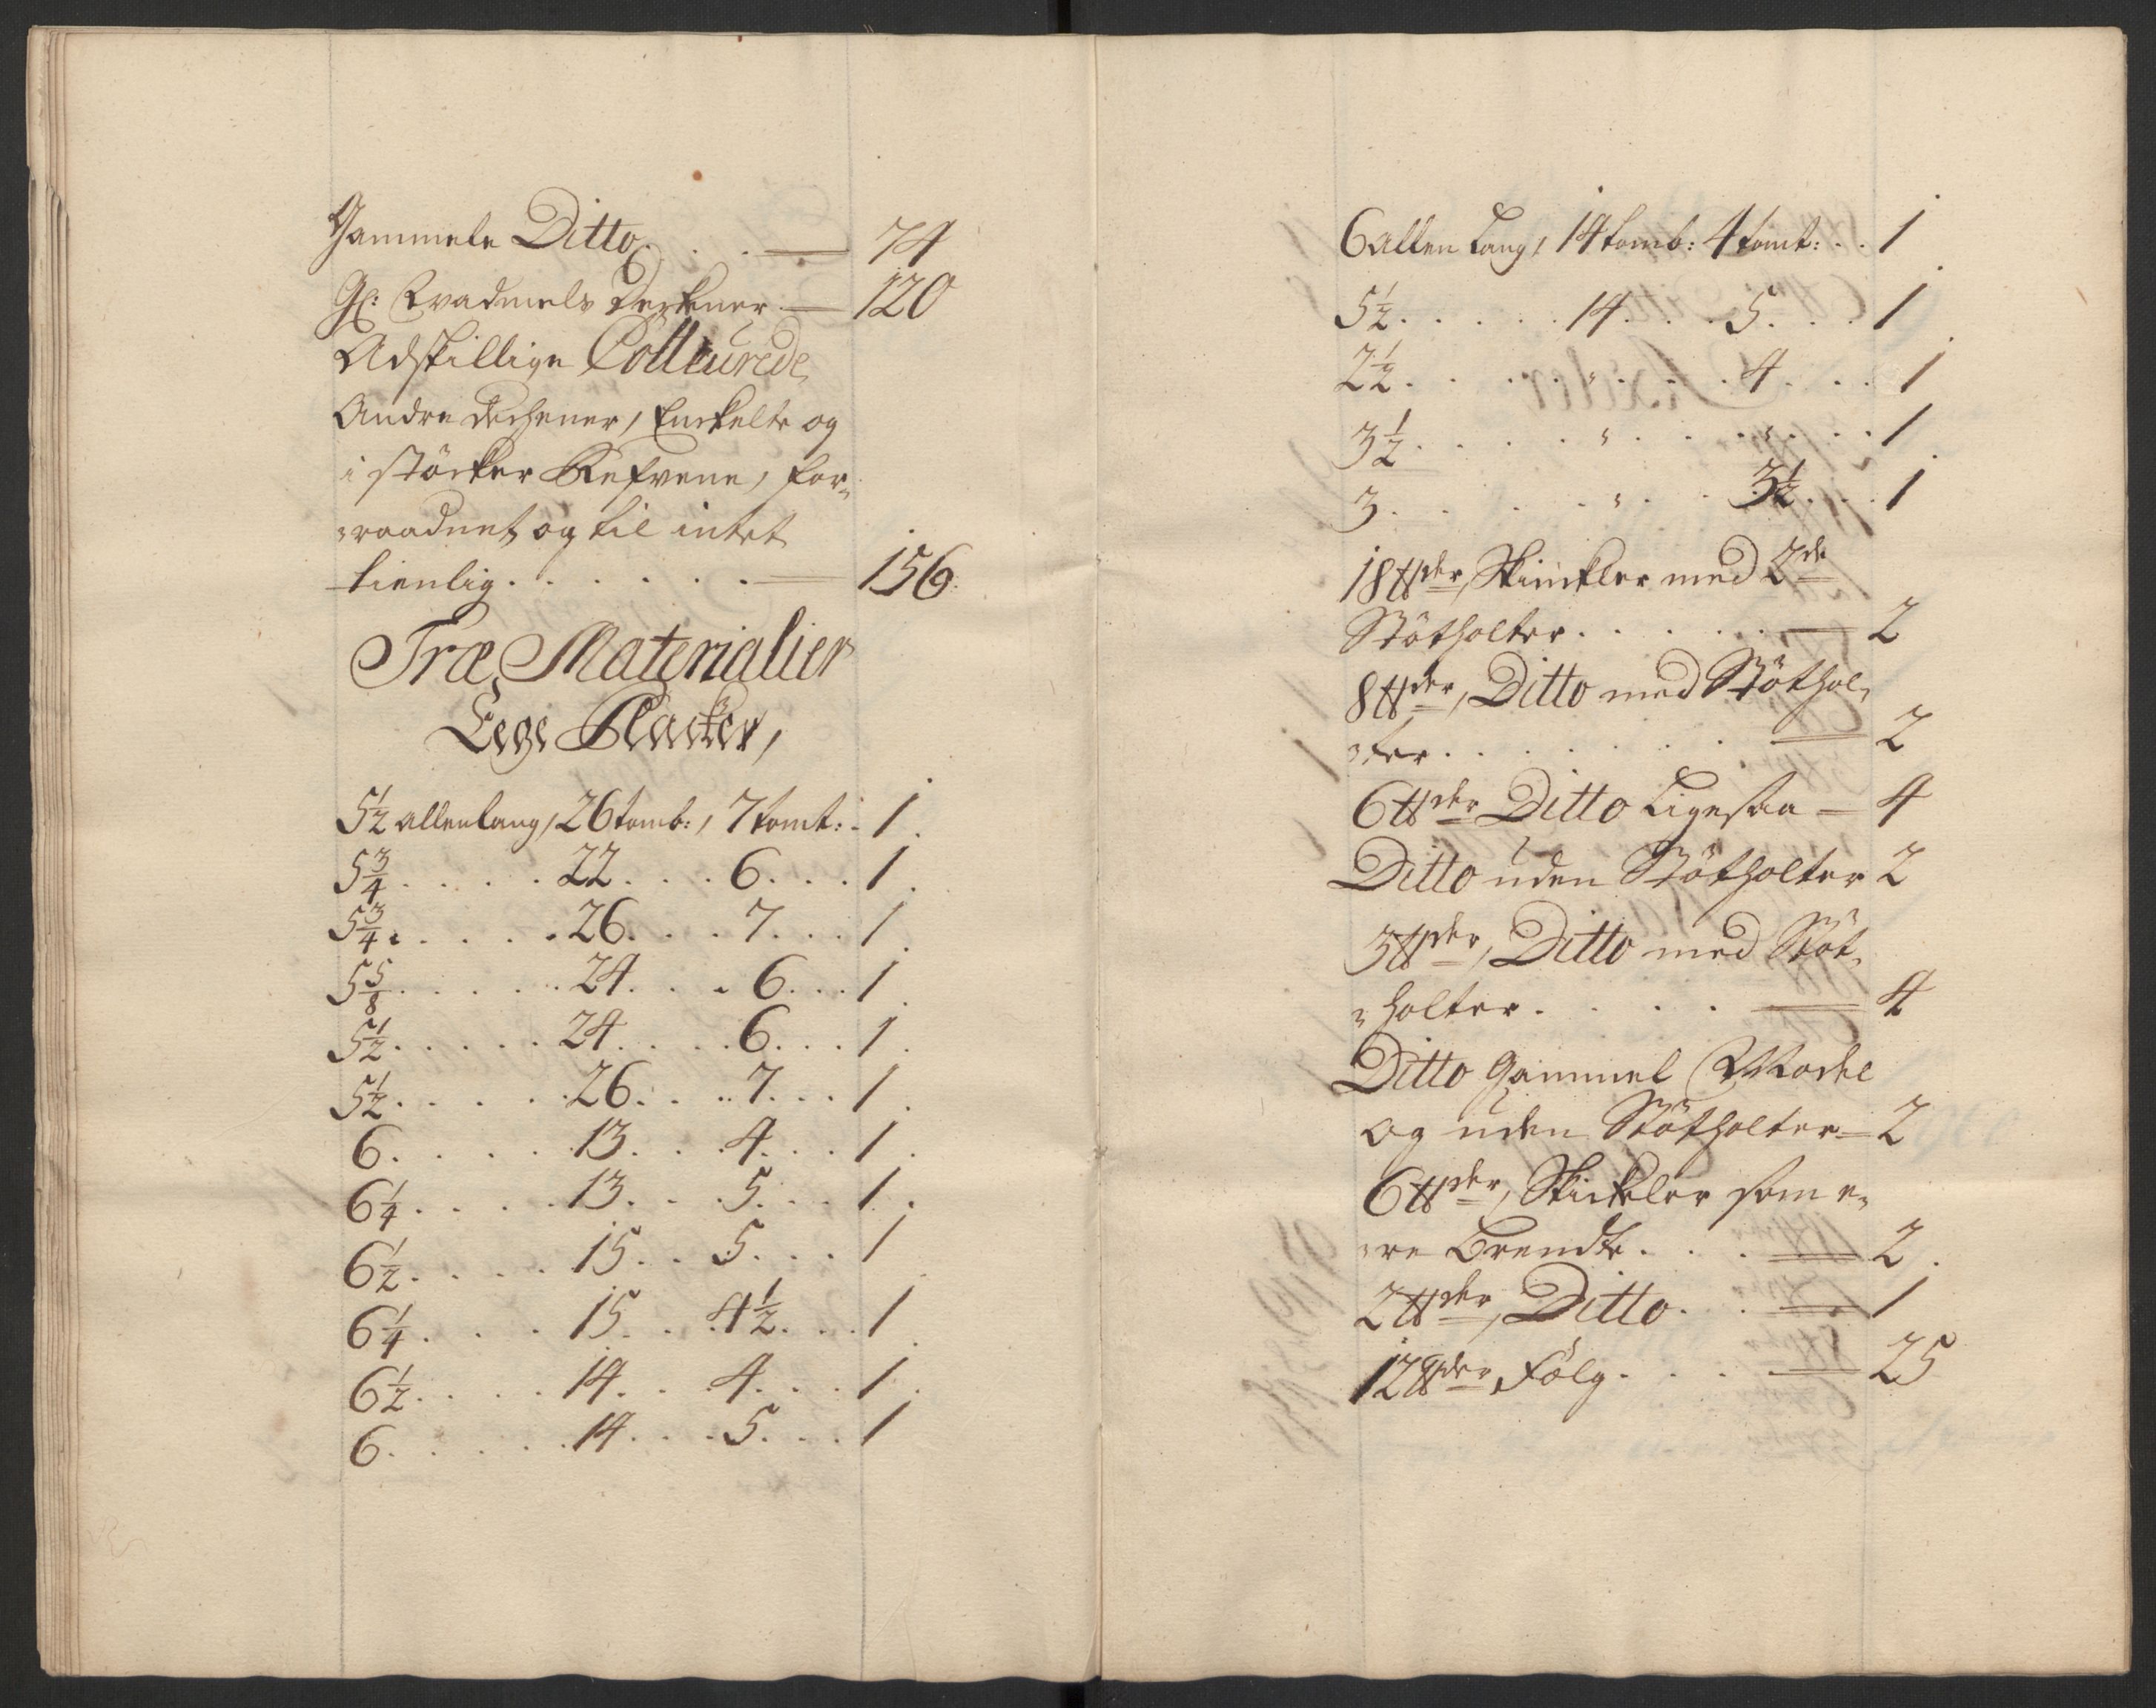 Gammele Ditto . . . — 74
Gl: Qvadmels Deckener — 120
Adskillige Colleurede
Andre dechener, Enckelte og
i støcker Refvene, for-
raadnet og til intet
tienlig . . . . . . — 156.
Træ Materialier
Eege Plancker,
5½ allen lang, 26 tomb:, 7 tomt: - 1.
5¾ . . . . . 22 . . . 6 . . . 1.
5¾ . . . . . 26 . . . 7 . . . 1.
5⅝ . . . . . 24 . . . 6 . . . 1.
5½ . . . . . 24 . . . . 6 . . . 1.
5½ . . . . . 26 . . . 7 . . . 1.
6 . . . . . 13 . . . 4 . . . 1.
6¼ . . . . 13 . . . 5 . . . 1.
6½ . . . . 15 . . 5 . . . 1
6¼ . . . . 15 . . . 4½ . . . 1.
6½ . . . . 14 . . . 4 . . . 1.
6 . . . . . 14 . . . 5 . . . 1
6 allen lang, 14 tomb: 4 tomt: . . 1
5½ . . . . . 14 . . . 5 . . . 1
2½ . . . . . " . . . . 4 . . . 1
3½ . . . . . " . . . " . . . 1
3 . . . . . " . . 3½ . . . 1
18 ℔der, Skinckler med 2de
Støtholter . . . . . — 2
8 ℔der, Ditto med Støthol-
ter . . . . . . — 2
6 ℔der Ditto Ligesaa — 4
Ditto uden Støtholter 2
3 ℔der, Ditto med Støt-
holter . . . . — 4
Ditto Gammel Model
og uden Støtholter — 2
6 ℔der, Skickler som e-
re Brendte . . . — 2.
2 ℔der, Ditto . . — 1
12 ℔der Følg . . . . — 25